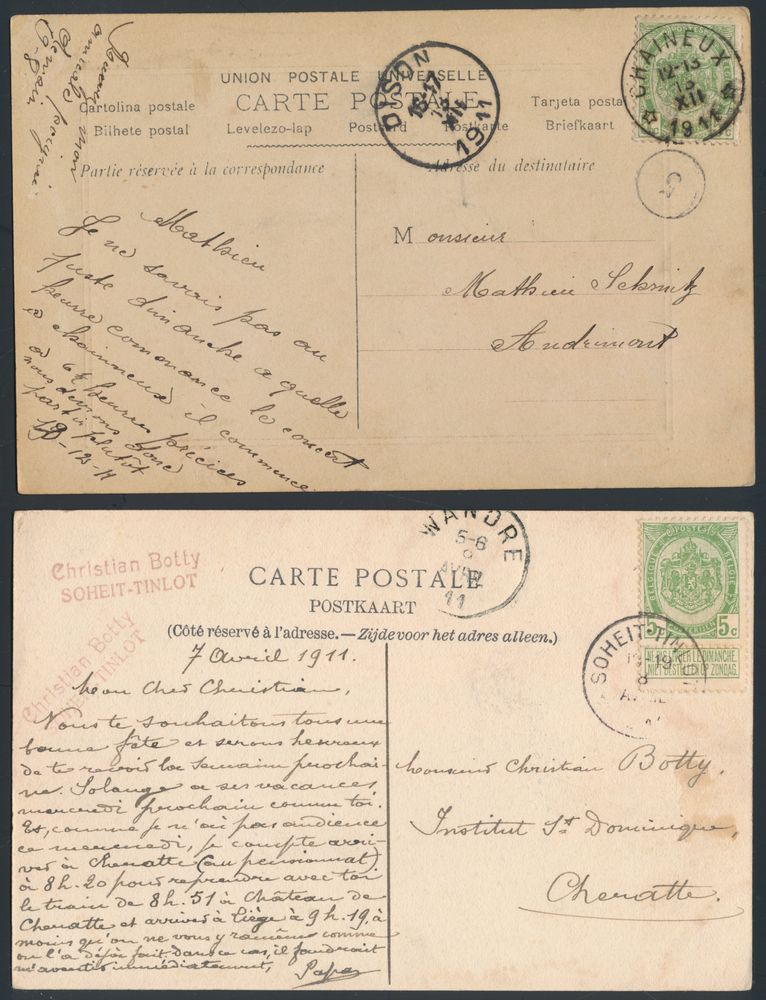 UNION POSTALE UNIVERSELLE
CARTE POSTALE
Cartolina postale
Tarjeta postal
Bilhete postal
Levelezo-lap
Postcard
Postkarte
Briefkaart
Partie réservée à la correspondance
Adresse du destinataire
DISON
15-17
XII
1911
CHAINEUX
12-13
13
XII
1911
Mathieu
Je ne savais pas au
juste dimanche a quelle
heure commance le concert
a chainneux il commence
a 6½ heures précices
nous devrons donc
partir plutôt
12-11
Monsieur
Mathieu Schmitz
Andrimont
WANDRE
5-6
8
AVRIL
11
Christian Botty
SOHEIT-TINLOT
Christian Botty
TINLOT
CARTE POSTALE
POSTKAART
(Côté réservé à l'adresse.—Zijde voor het adres alleen.)
POSTES
BELGIQUE
BELGIË
5c 5c
NE PAS LIVRER LE DIMANCHE
NIET BESTELLEN OP ZONDAG
SOHEIT-TINLOT
8
7 Avril 1911.
Mon Cher Christian,
Nous te souhaitons tous une
bonne fête et serons heureux
de te revoir la semaine prochai-
ne. Solange a ses vacances
mercredi prochain comme toi.
Et, comme je n'ai pas audience
ce mercredi, je compte arri-
ver à Cheratte (au pensionnat)
à 8h.20 pour reprendre avec toi
le train de 8h.51 à Château de
Cheratte et arriver à Liège à 9h.19, à
moins qu'on ne vous y ramène comme
on l'a déjà fait. Dans ce cas, il faudrait
m'avertir immédiatement,
Papa
Monsieur Christian Botty,
Institut St Dominique,
Cheratte.